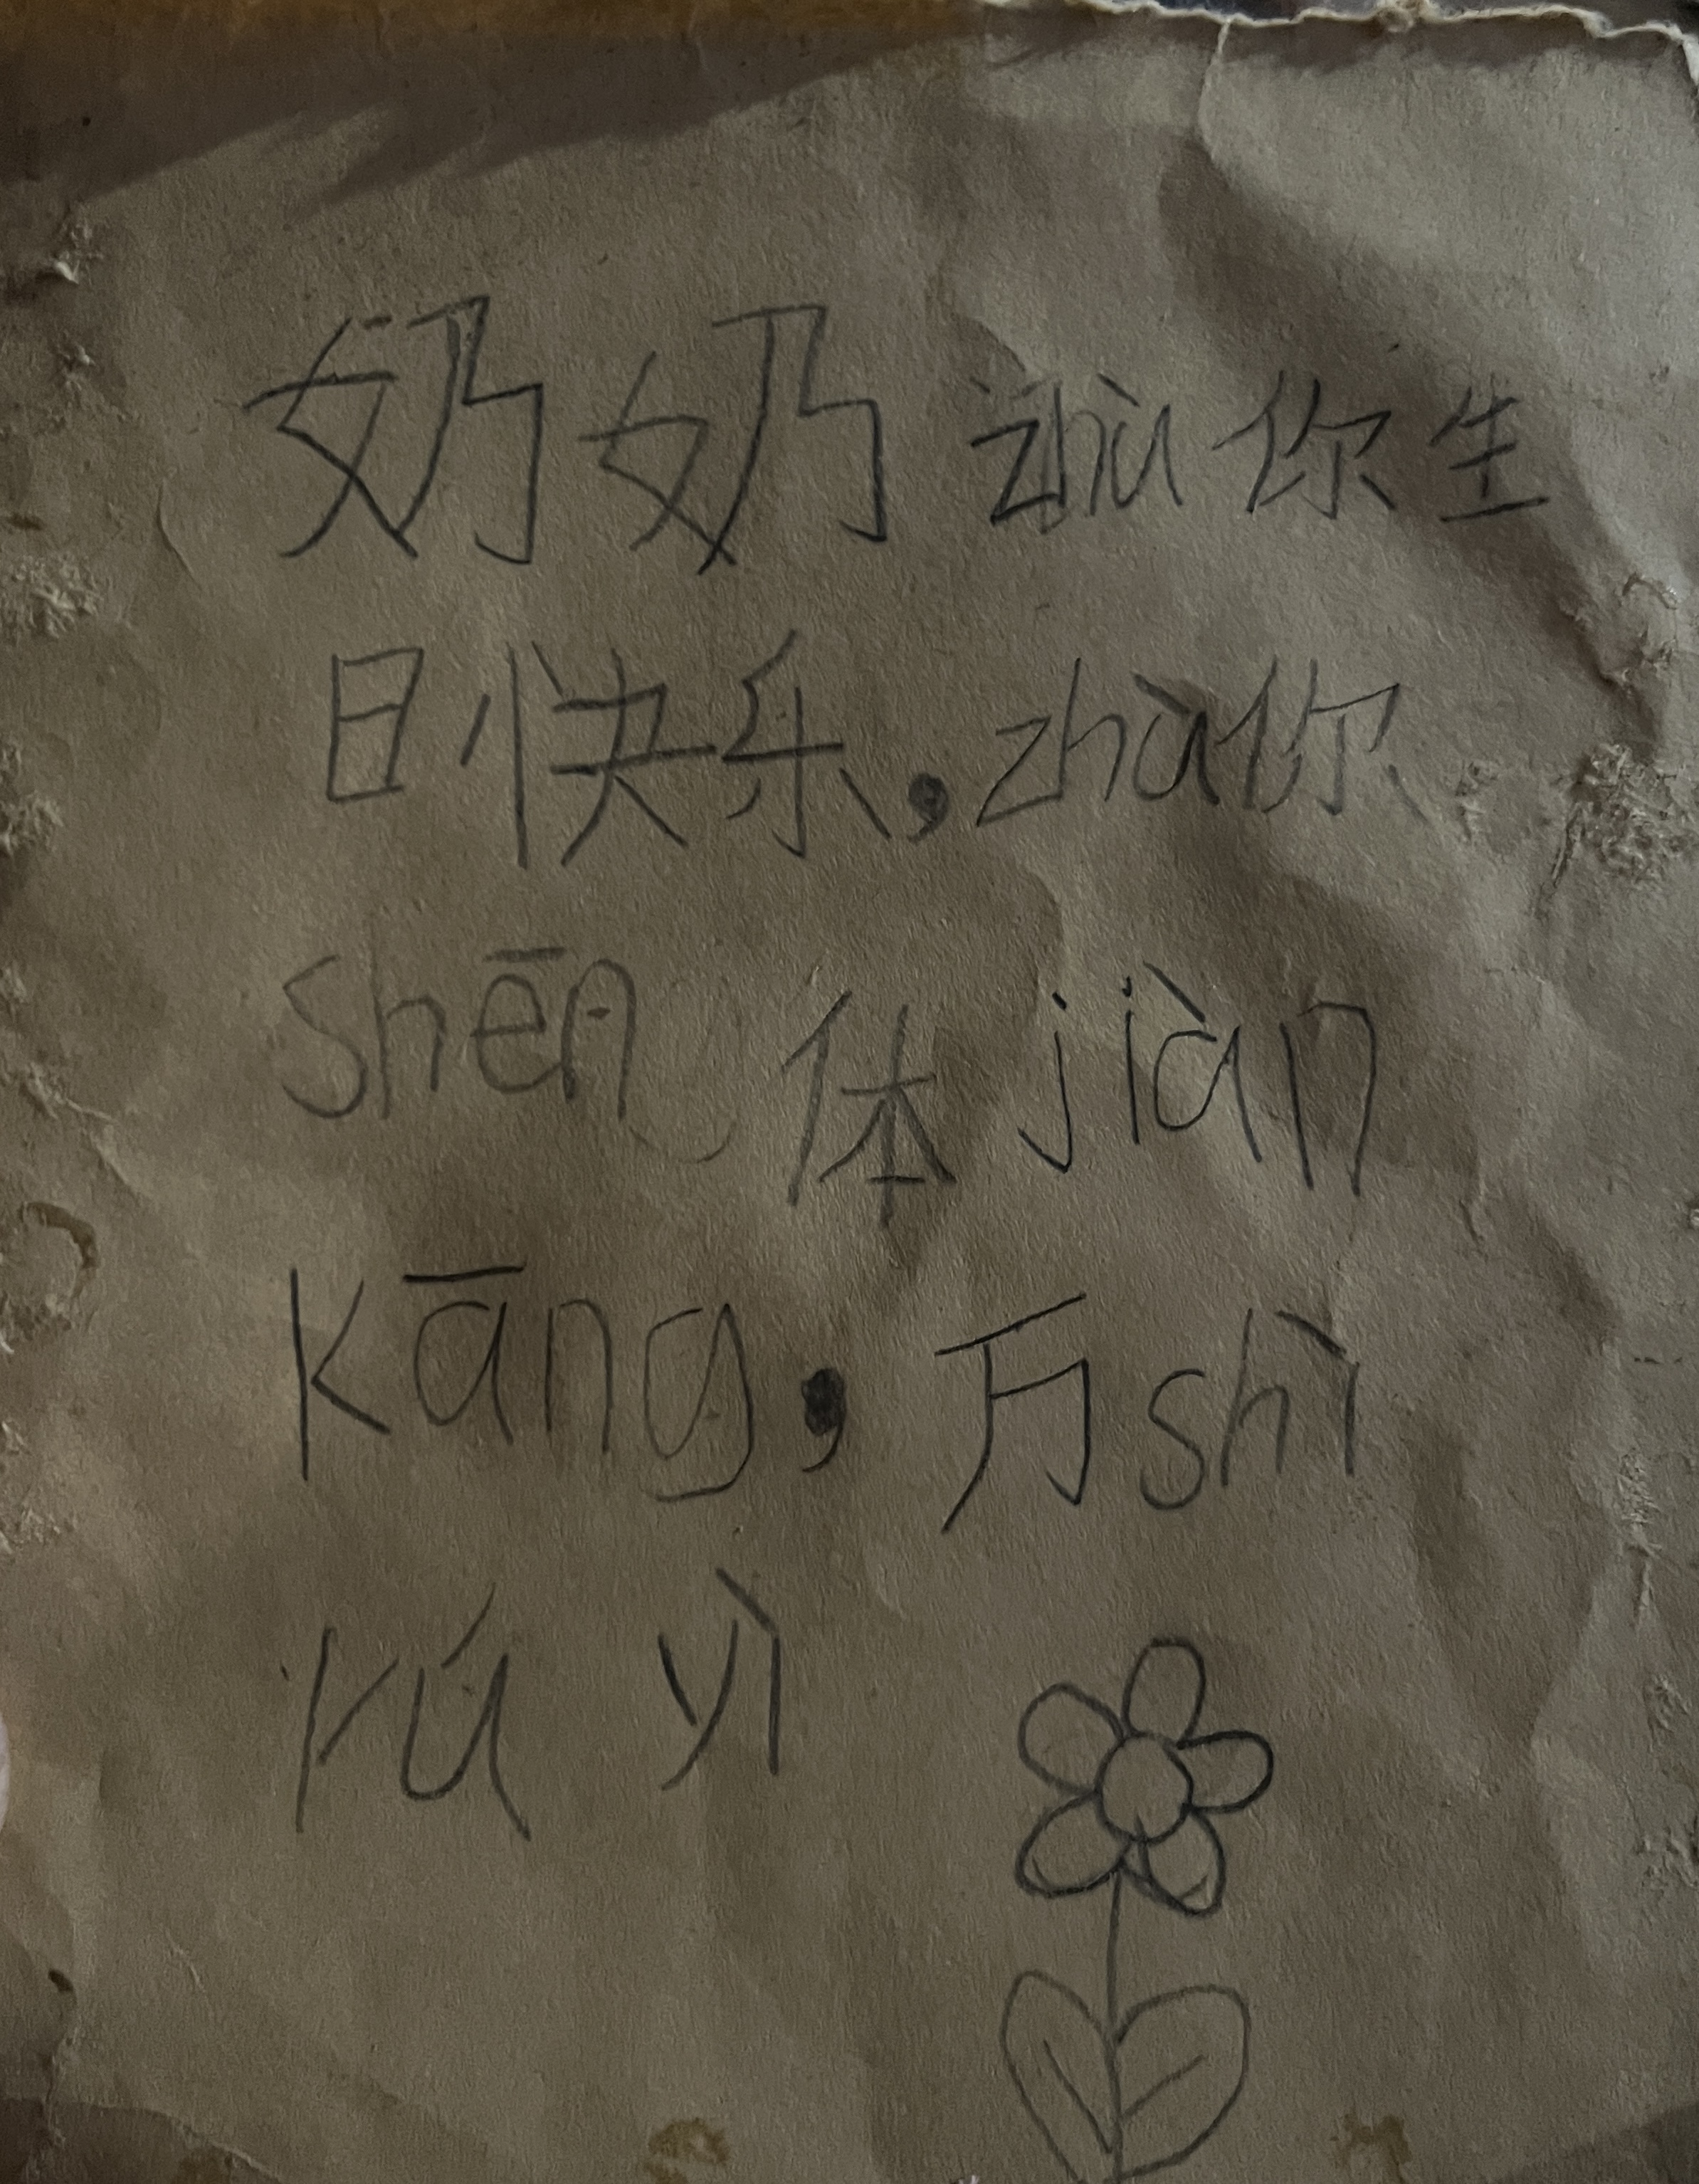 奶奶zhù你生
日快乐,zhù你
shēn体jiàn
kāng,万shì
rú yì